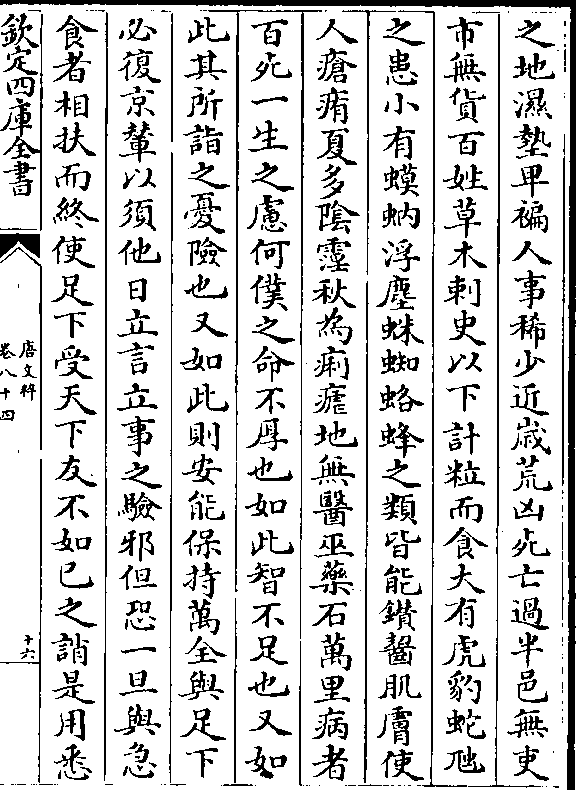 之地濕墊卑褊人事稀少近歲荒凶死亡過半邑無吏
市無貨百姓草木刺史以下計粒而食大有虎豹蛇虺
之患小有蟆蚋浮塵蛛蜘蛒蜂之類皆能鑽齧肌膚使
人瘡痏夏多陰霪秋為痢瘧地無醫巫藥石萬里病者
百死一生之慮何僕之命不厚也如此智不足也又如
此其所詣之憂險也又如此則安能保持萬全與足下
必復京輦以須他日立言立事之驗邪但恐一旦與急
食者相扶而終使足下受天下友不如已之誚是用悉
欽定四庫全書
唐文粹
卷八十四
十六